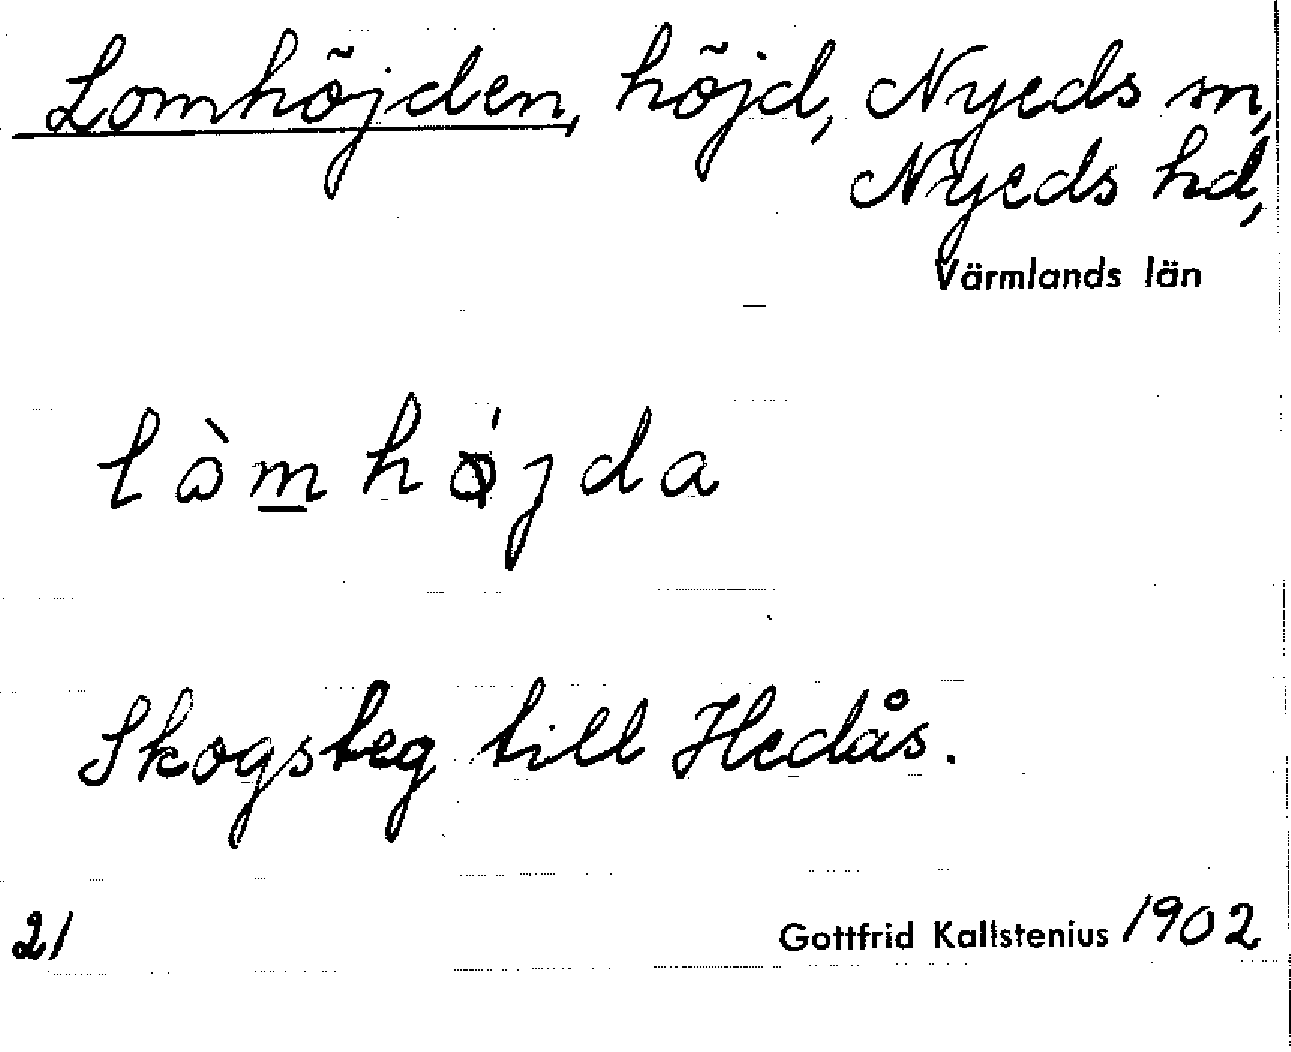 Lomhöjden, höjd, Nyeds sn,
Nyeds hd,
Värmlands län
làmhǿjda
Skogsteg till Hedås.
21 Gottfrid Kallstenius 1902